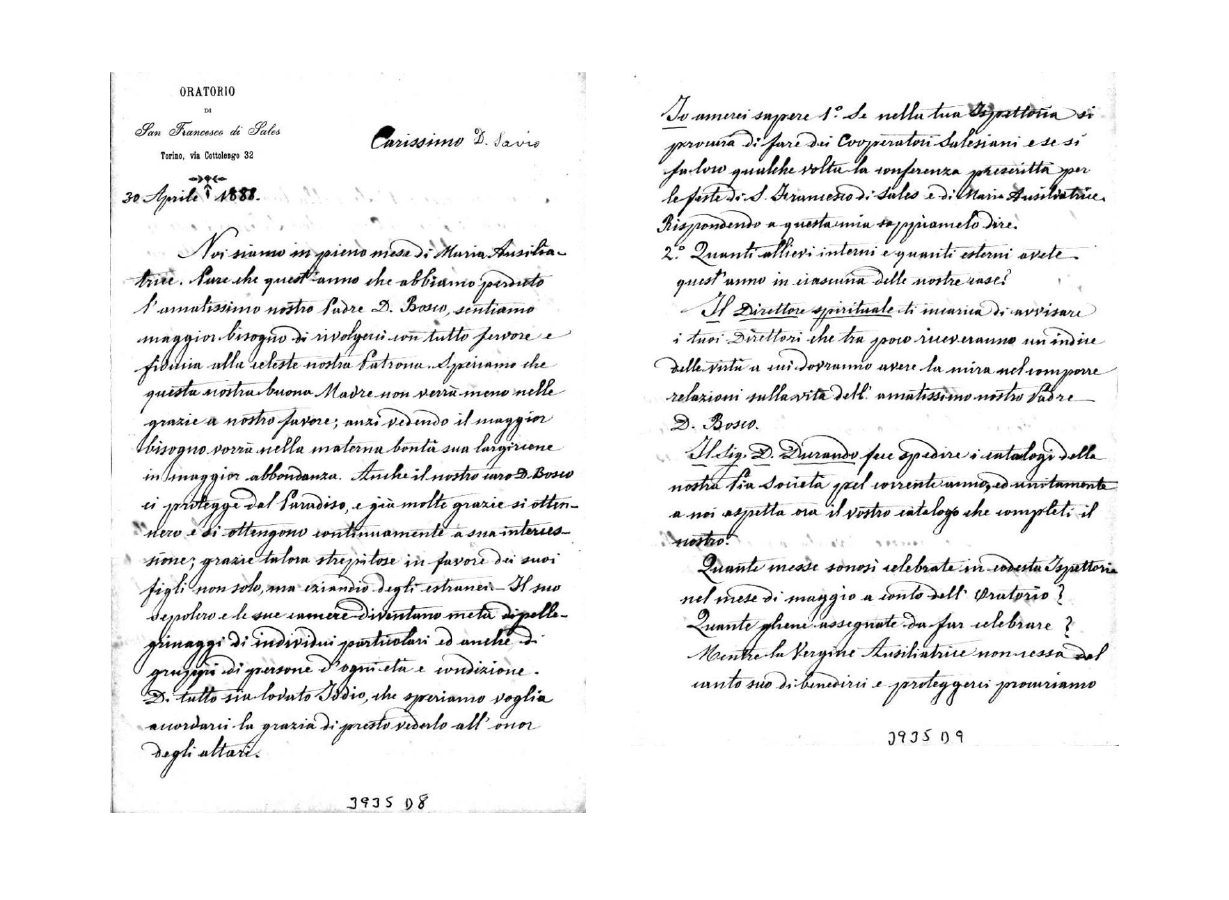 ORATORIO
DI
San Francesco di Sales
Torino, via Cottolengo 32
Carissimo D. Savio
30 Aprile 1888.
Noi siamo in pieno mese di Maria Ausilia-
trice. Pare che quest'anno che abbiamo perduto
l'amatissimo nostro Padre D. Bosco, sentiamo
maggior bisogno di rivolgerci con tutto fervore e
fiducia alla celeste nostra Patrona. Speriamo che
questa nostra buona Madre non verrà meno nelle
grazie a nostro favore; anzi vedendo il maggior
bisogno vorrà nella materna bontà sua largircene
in maggior abbondanza. Anche il nostro caro D. Bosco
ci protegge dal Paradiso, e già molte grazie si otten-
nero e si ottengono continuamente a sua interces-
sione; grazie talora strepitose in favore dei suoi
figli non solo, ma eziandio degli estranei – Il suo
sepolcro e le sue camere diventano meta di pelle-
grinaggi di individui particolari ed anche di
gruppi di persone d'ogni età e condizione.
D. tutto sia lodato Iddio, che speriamo voglia
accordarci la grazia di presto vederlo all'onor
degli altari.
3935 D8
Io amerei sapere 1.° Se nella tua Ispettoria si
procura di fare dei Cooperatori Salesiani e se si
fa loro qualche volta la conferenza prescritta per
le feste di S. Francesco di Sales e di Maria Ausiliatrice.
Rispondendo a questa mia sappiamelo dire.
2.° Quanti allievi interni e quanti esterni avete
quest'anno in ciascuna delle nostre case?
Il Direttore spirituale ti incarica di avvisare
i tuoi Direttori che tra poco riceveranno un indice
delle virtù a cui dovranno avere la mira nel comporre
relazioni sulla vita dell'amatissimo nostro Padre
D. Bosco.
Il Sig. D. Durando fece spedire i cataloghi della
nostra Pia Società pel corrente anno, ed unitamente
a noi aspetta ora il vostro catalogo che completi il
nostro.
Quante messe sonosi celebrate in codesta Ispettoria
nel mese di maggio a conto dell'Oratorio?
Quante ghene assegnate da far celebrare?
Mentre la Vergine Ausiliatrice non cessa dal
canto suo di benedirci e proteggerci procuriamo
3935 D9